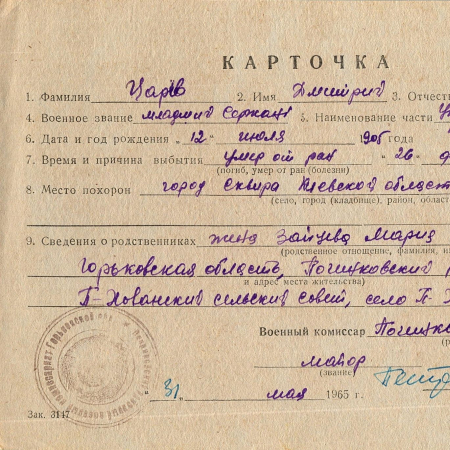 КАРТОЧКА
1. Фамилия Царёв 2. Имя Дмитрий 3. Отчест
4. Военное звание младший сержант 5. Наименование части
6. Дата и год рождения „12“ июля 1905 года
7. Время и причина выбытия умер от ран „26“
(погиб, умер от ран (болезни)
8. Место похорон город Сквира Киевской област
(село, город (кладбище), район, област
9. Сведения о родственниках жена Зайцева Мария
(родственное отношение, фамилия, и
Горьковская область, Починковский р
и адрес места жительства)
П-Хованский сельский совет, село П-
Военный комиссар Починко
майор
(звание)
31 мая 1965 г.
Зак. 3147